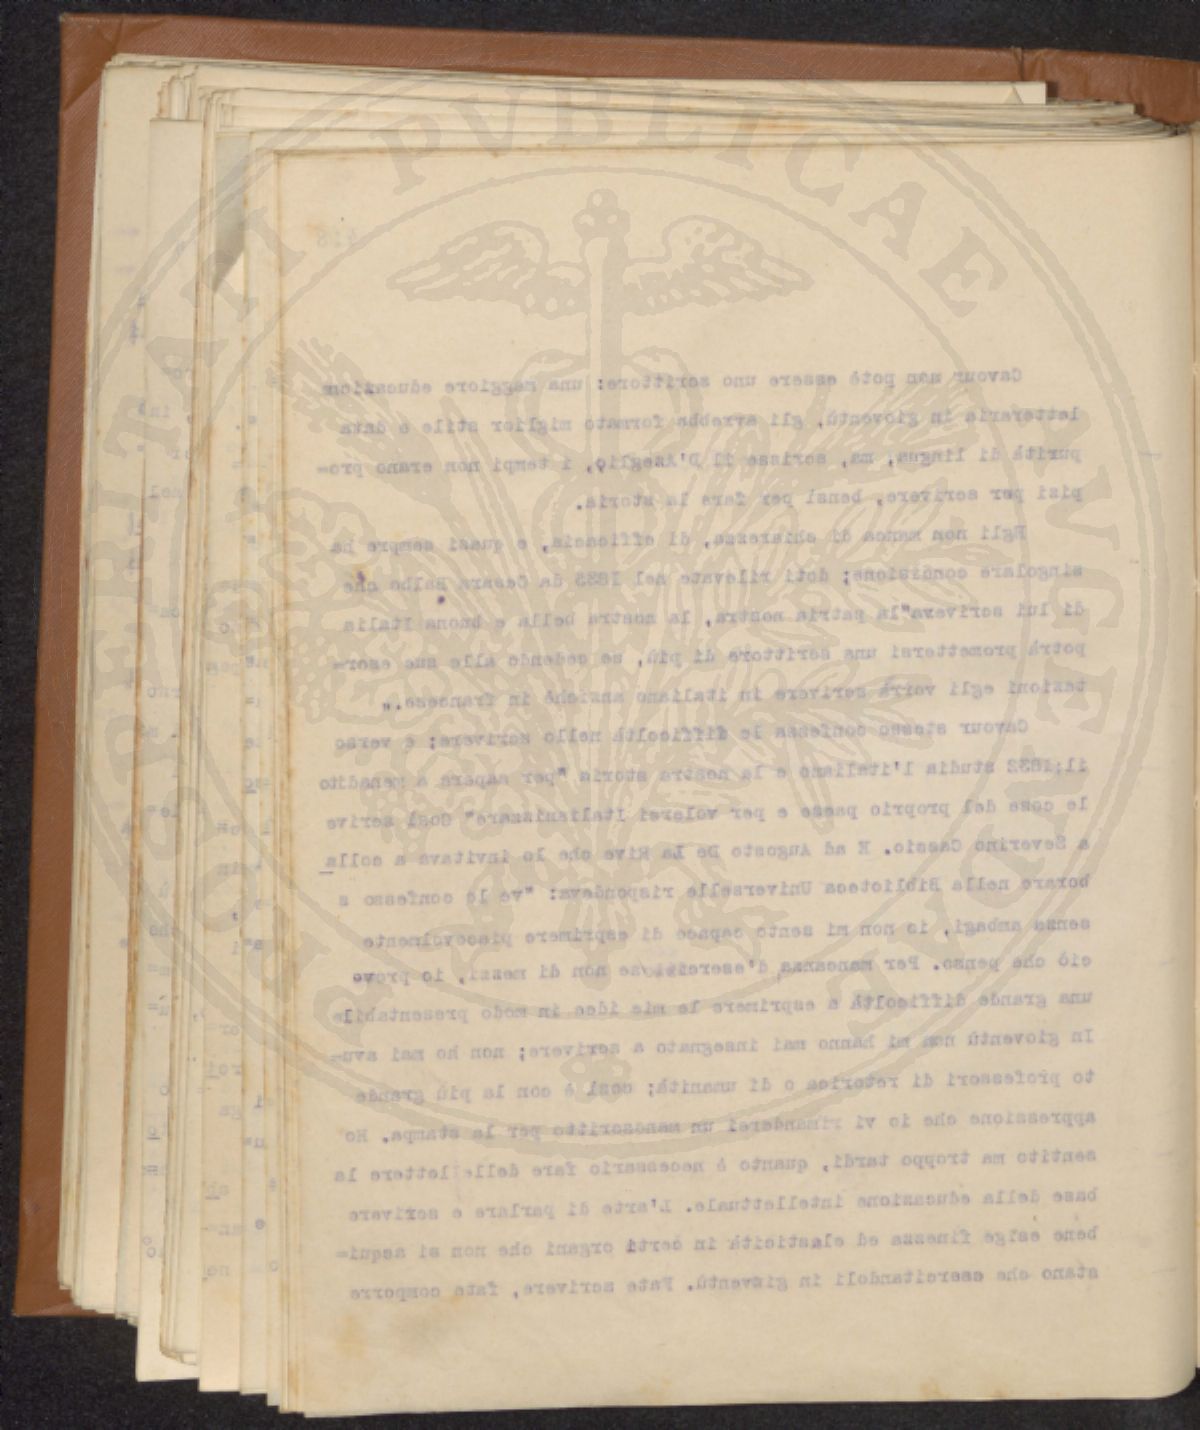 418
Cavour non potè essere uno scrittore: una maggiore educazione
letteraria in gioventù, gli avrebbe formato miglior stile e data
purità di lingua; ma, scrisse il D'Azeglio, i tempi non erano pro-
pizi per scrivere, bensì per fare la storia.
Egli non manca di chiarezza, di efficacia, e quasi sempre ha
singolare concisione; doti rilevate nel 1835 da Cesare Balbo che
di lui scriveva"la patria nostra, la nostra bella e buona Italia
potrà promettersi uno scrittore di più, se cedendo alle sue esor-
tazioni egli vorrà scrivere in italiano anzichè in francese.„
Cavour stesso confessa le difficoltà nello scrivere; e verso
il;1832 studia l'italiano e la nostra storia "per sapere a menadito
le cose del proprio paese e per volersi italianizzare" Così scrive
a Severino Cassio. E ad Augosto De La Rive che lo invitava a colla_
borare nella Biblioteca Universelle rispondeva: "ve lo confesso
senza ambagi, io non mi sento capace di esprimere piacevolmente
ciò che penso. Per mancanza d'esercizione non di mezzi, io provo
una grande difficoltà a esprimere le mie idee in modo presentabile
In gioventù non mi hanno mai insegnato a scrivere; non ho mai avu-
to professori di retorica o di umanità; così è con la più grande
appressione che io vi rimanderei un manoscritto per la stampa. Ho
sentito ma troppo tardi, quanto è necessario fare delle lettere la
base della educazione intellettuale. L'arte di parlare e scrivere
bene esige finezza ed elasticità in certi organi che non si acqui=
stano che esercitandoli in gioventù. Fate scrivere, fate comporre
PROSPERITATI PVBLICAE AVGENDAE